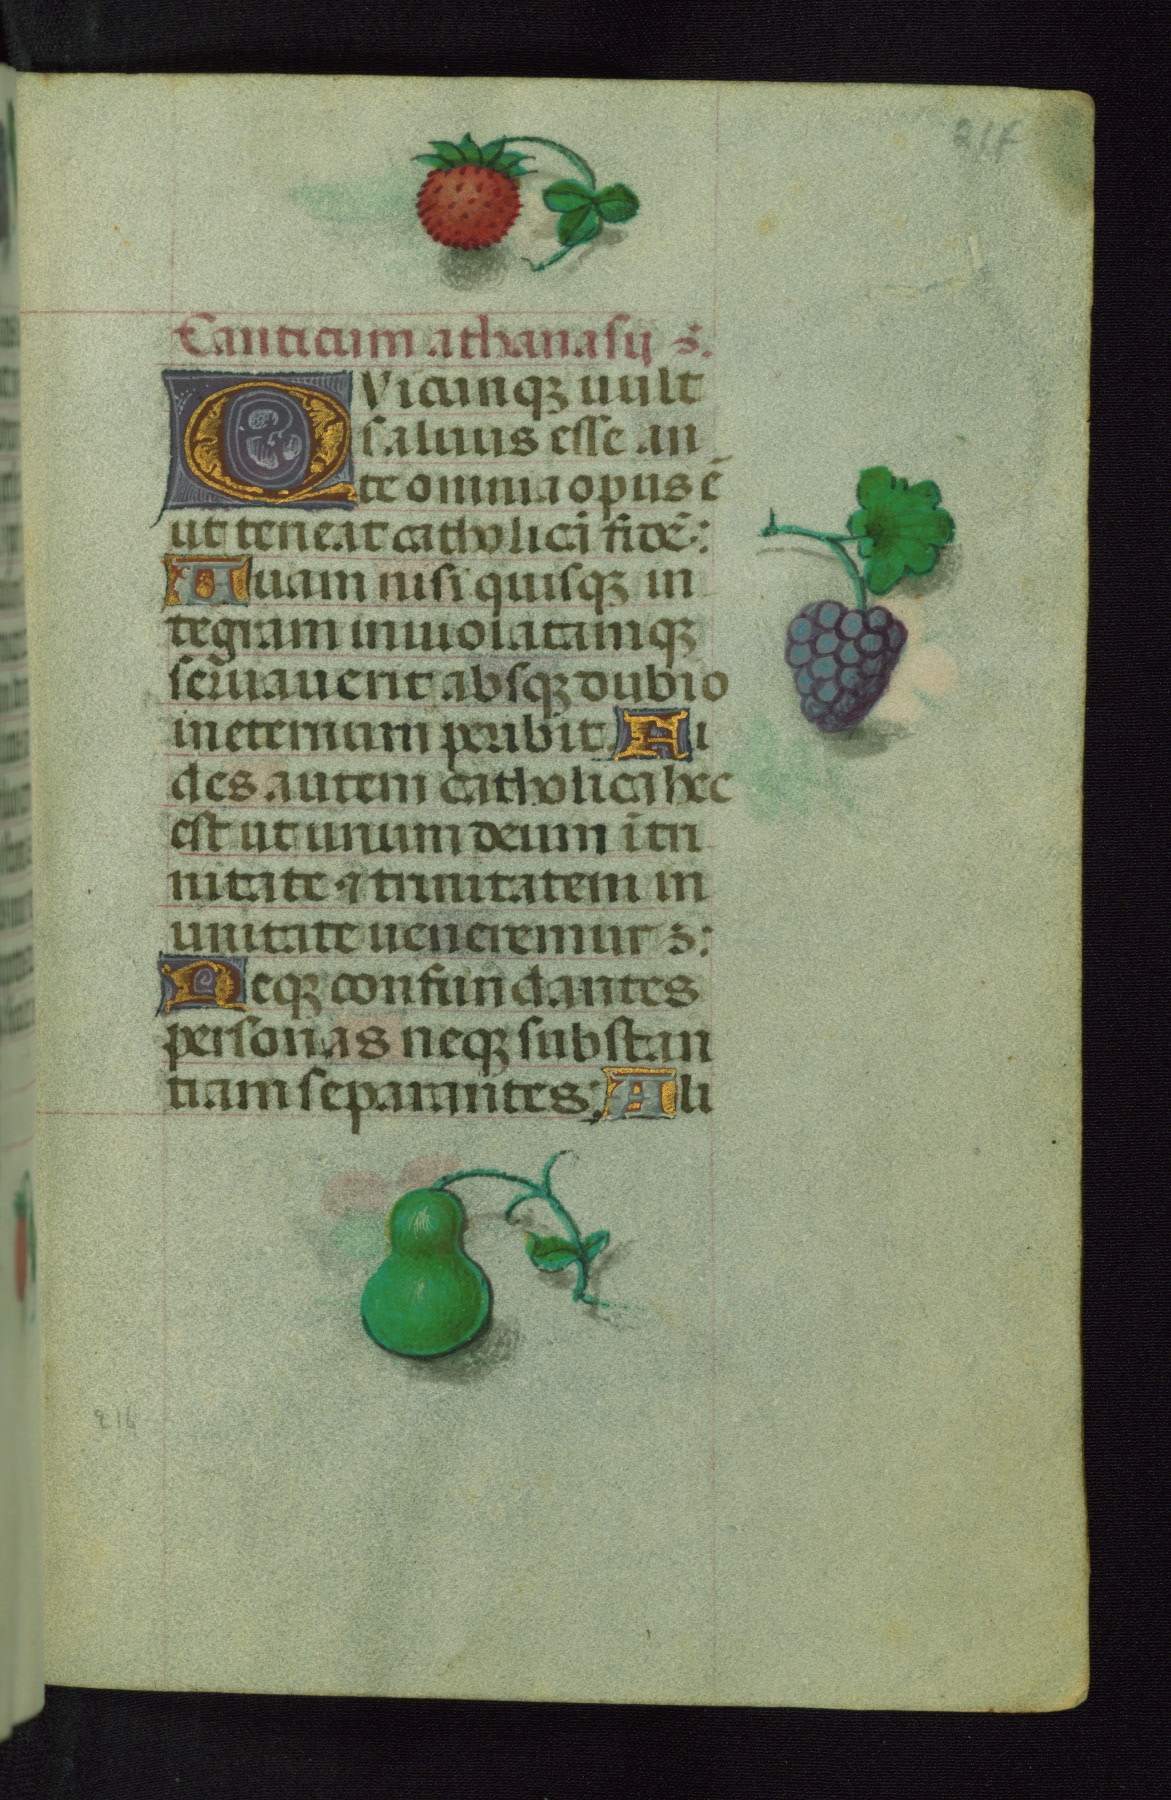 Canticum athanasij s̄.
QVicunqꝫ uult
saluus esse an
te omnia opus ē
ut teneat catholicā fidē:
Quam nisi quisqꝫ in
tegram inuiolatamqꝫ
seruauerit absqꝫ dubio
in eternum peribit Fi
des autem catholica hec
est ut unum deum ī tri
nitate ⁊ trinitatem in
unitate ueneremur s̄:
Neqꝫ confundantes
personas neqꝫ substan
tiam separantes: Ali